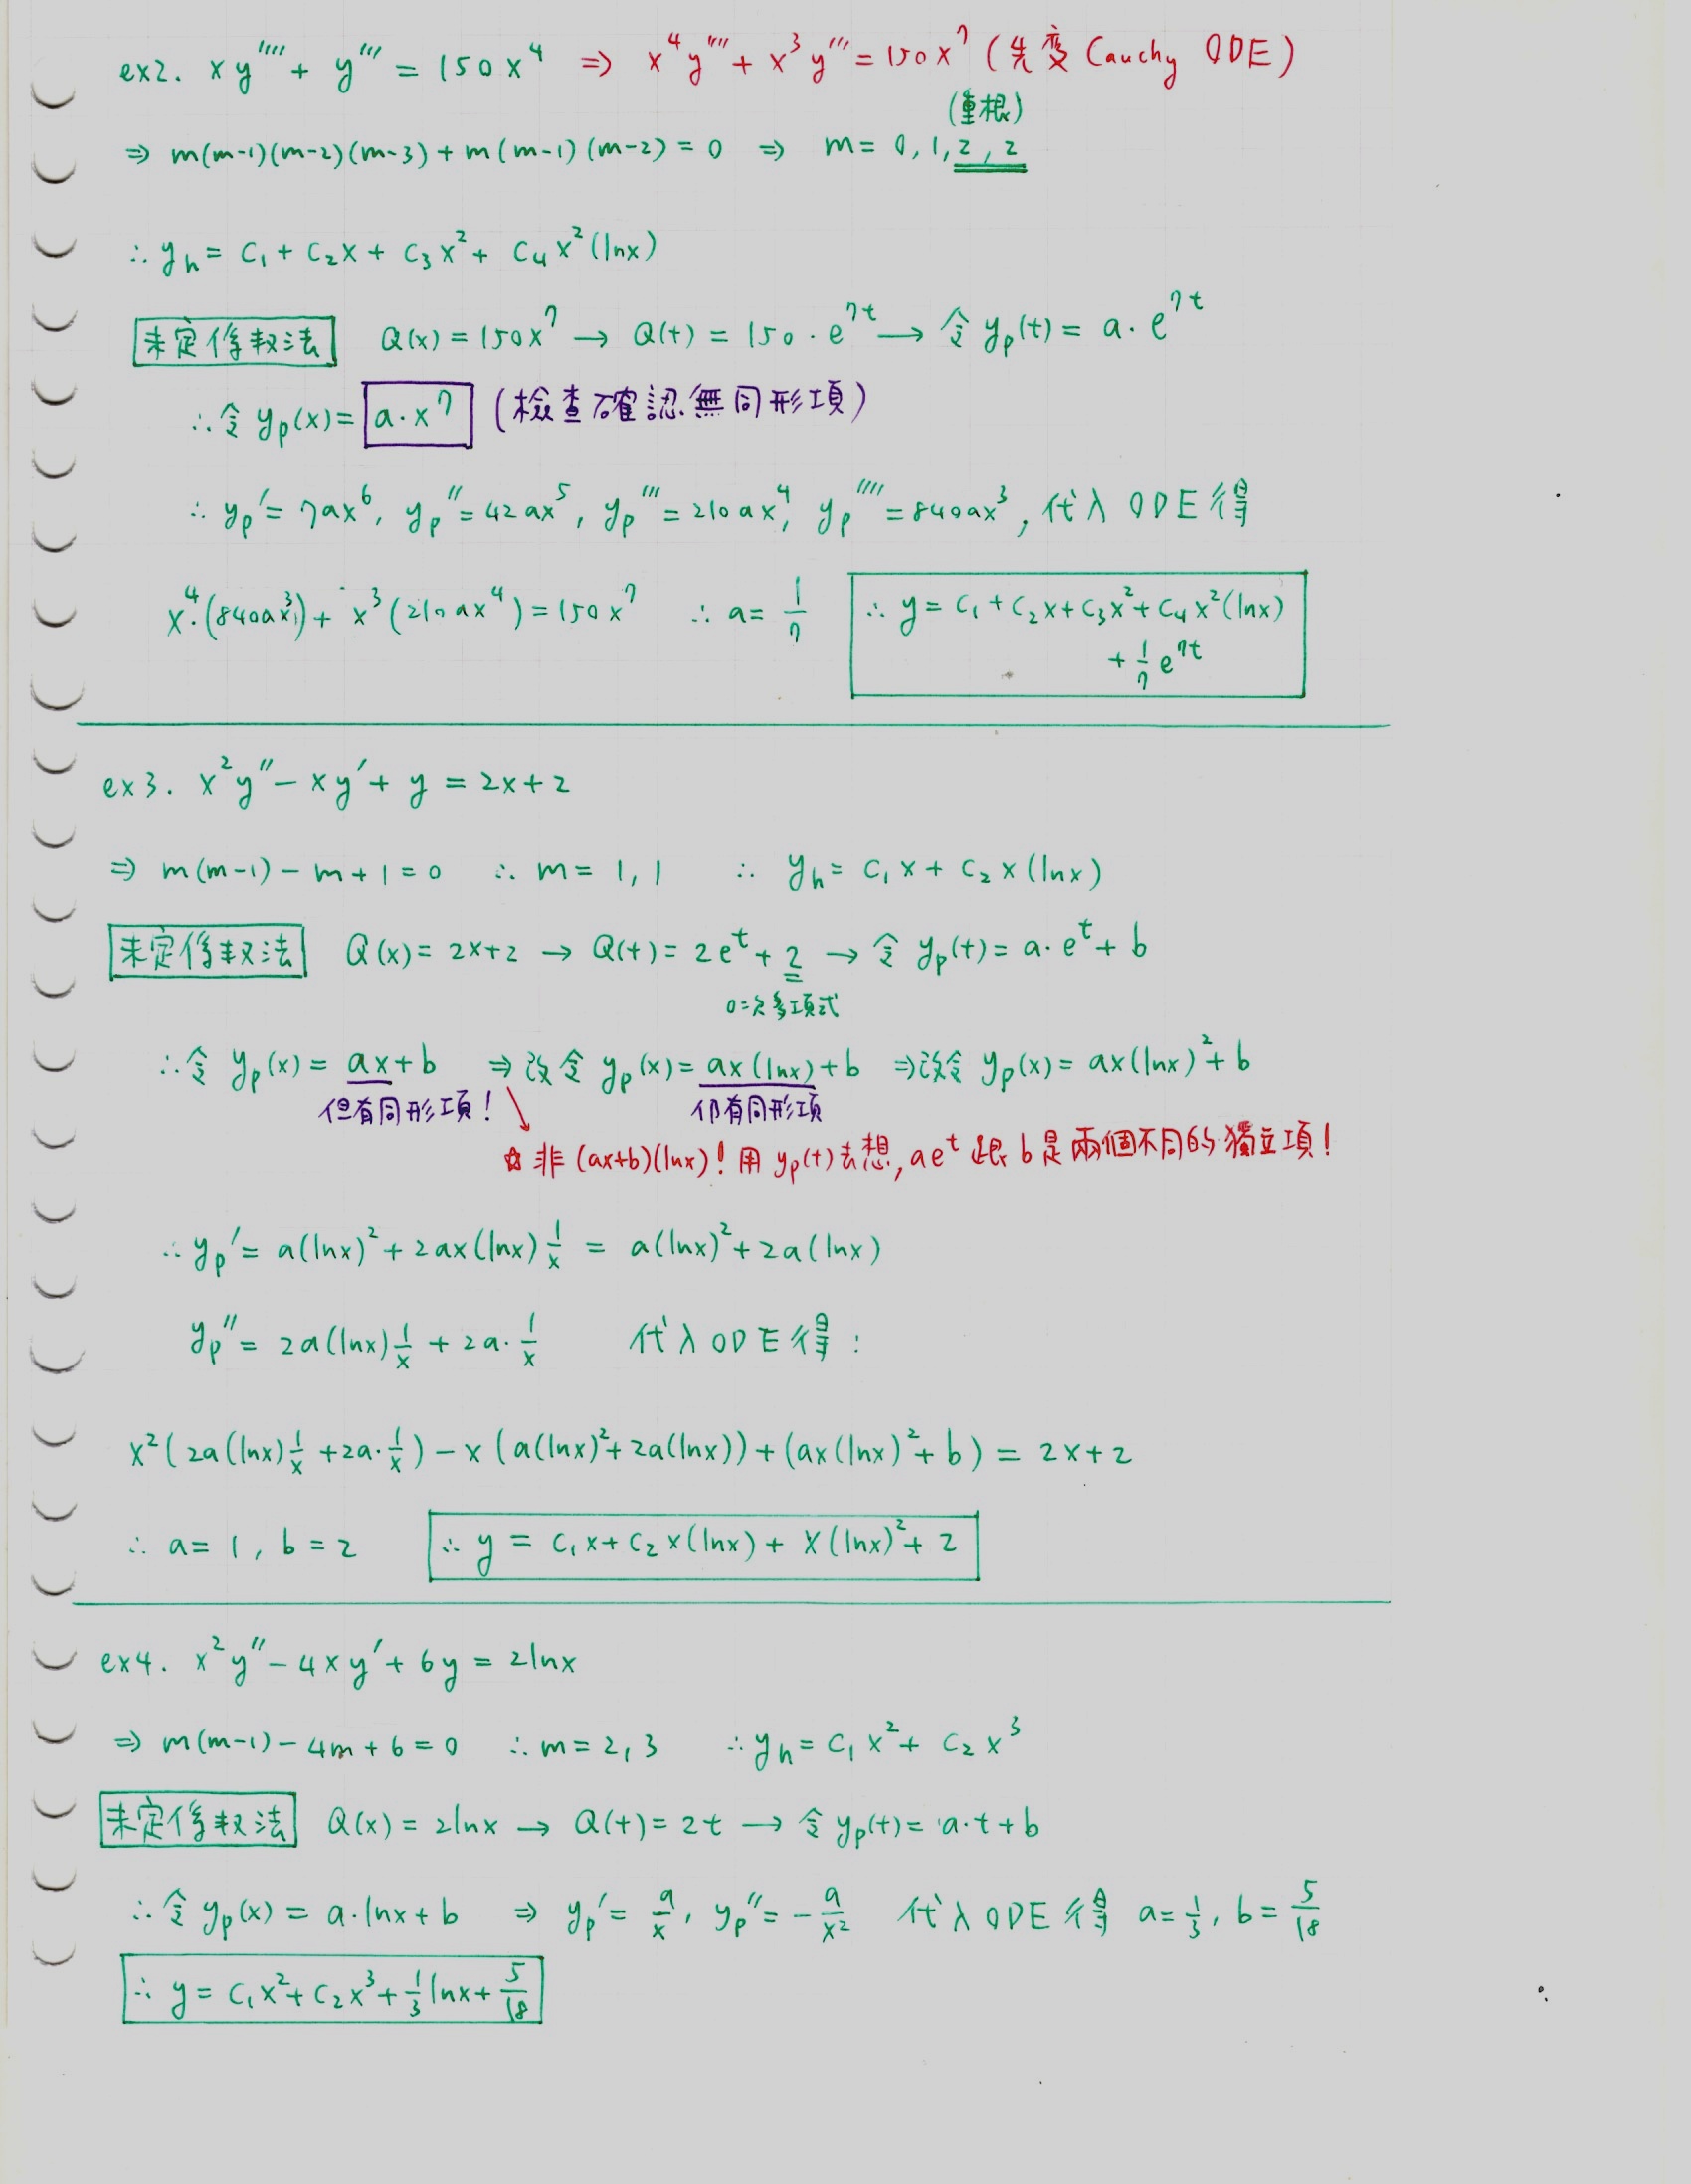 ex2. xy'''' + y''' = 150x⁴ ⇒ x⁴y'''' + x³y''' = 150x⁷ (先变 Cauchy ODE)
(重根)
⇒ m(m-1)(m-2)(m-3) + m(m-1)(m-2) = 0 ⇒ m = 0, 1, 2, 2
∴ yₕ = C₁ + C₂x + C₃x² + C₄x²(lnx)
未定係數法 Q(x) = 150x⁷ → Q(t) = 150·e^{7t} → 令 yₚ(t) = a·e^{7t}
∴令 yₚ(x) = a·x⁷ (檢查確認無同形項)
∴ yₚ' = 7ax⁶, yₚ'' = 42ax⁵, yₚ''' = 210ax⁴, yₚ'''' = 840ax³, 代入 ODE 得
x⁴·(840ax³) + x³(210ax⁴) = 150x⁷ ∴ a = 1/7 ∴ y = C₁ + C₂x + C₃x² + C₄x²(lnx)
+ 1/7 e^{7t}
ex3. x²y'' - xy' + y = 2x+2
⇒ m(m-1) - m + 1 = 0 ∴ m = 1, 1 ∴ yₕ = C₁x + C₂x(lnx)
未定係數法 Q(x) = 2x+2 → Q(t) = 2e^t + 2 → 令 yₚ(t) = a·e^t + b
0次多項式
∴令 yₚ(x) = ax+b ⇒ 改令 yₚ(x) = ax(lnx)+b ⇒改令 yₚ(x) = ax(lnx)²+b
但有同形項! 仍有同形項
☆ 非 (ax+b)(lnx)! 用 yₚ(t) 去想, ae^t 跟 b 是兩個不同的獨立項!
∴ yₚ' = a(lnx)² + 2ax(lnx) 1/x = a(lnx)² + 2a(lnx)
yₚ'' = 2a(lnx) 1/x + 2a·1/x 代入ODE得:
x²(2a(lnx) 1/x + 2a·1/x) - x(a(lnx)² + 2a(lnx)) + (ax(lnx)² + b) = 2x+2
∴ a = 1, b = 2 ∴ y = C₁x + C₂x(lnx) + x(lnx)² + 2
ex4. x²y'' - 4xy' + 6y = 2lnx
⇒ m(m-1) - 4m + 6 = 0 ∴ m = 2, 3 ∴ yₕ = C₁x² + C₂x³
未定係數法 Q(x) = 2lnx → Q(t) = 2t → 令 yₚ(t) = a·t + b
∴令 yₚ(x) = a·lnx + b ⇒ yₚ' = a/x, yₚ'' = -a/x² 代入ODE得 a = 1/3, b = 5/18
∴ y = C₁x² + C₂x³ + 1/3 lnx + 5/18